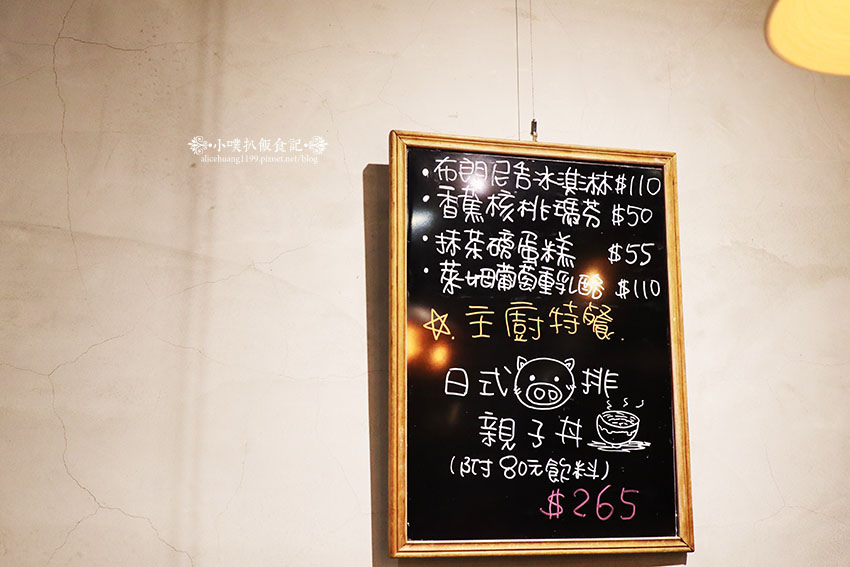 小噗扒飯食記
alicehuang1199.pixnet.net/blog
・布朗尼杏冰淇淋$110
・香蕉核桃瑪芬 $50
・抹茶磅蛋糕 $55
・萊姆葡萄重乳酪 $110
☆.主廚特餐.
日式 排
親子丼
(附80元飲料)
$265